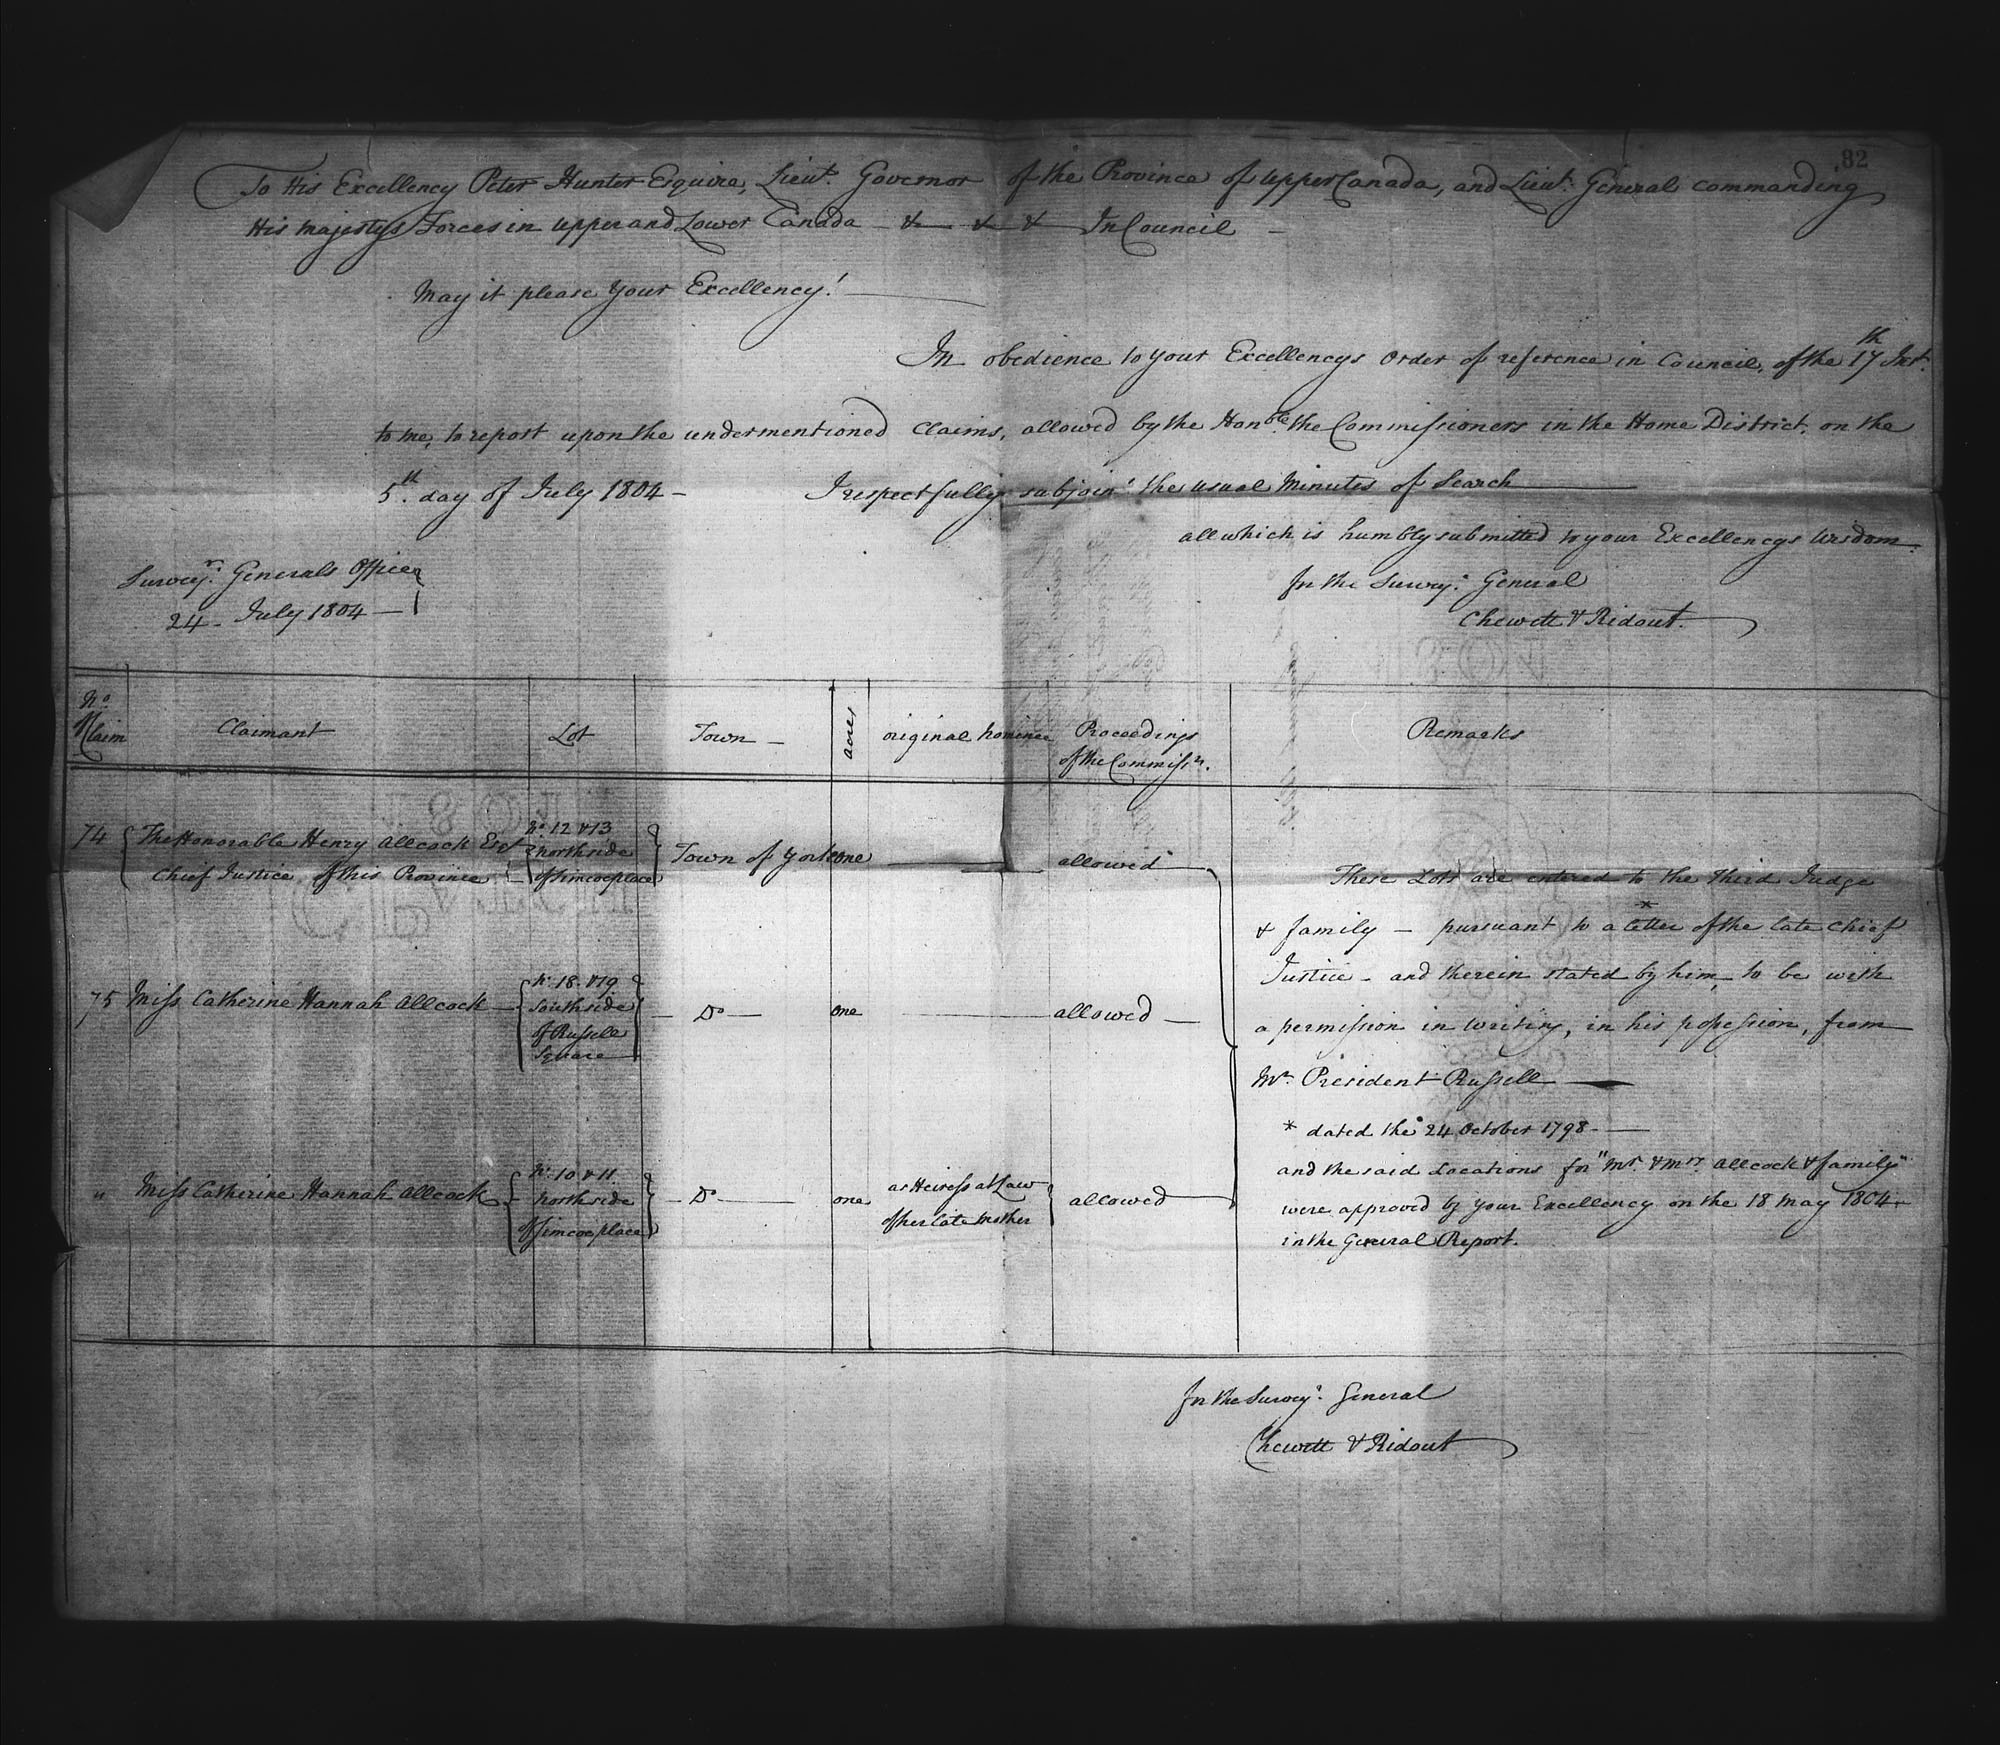 82
To His Excellency Peter Hunter Esquire, Lieut. Governor of the Province of Upper Canada, and Lieut. General commanding
His majestys Forces in upper and Lower Canada - & - & - & - In Council -
May it please Your Excellency!
In obedience to your Excellencys Order of reference in Council, of the 17th Inst.
to me, to report upon the undermentioned Claims, allowed by the Honble the Commissioners in the Home District, on the
5th day of July 1804 - I respectfully subjoin the usual Minutes of Search
all which is humbly submitted to your Excellencys Wisdom.
Surveyr. Generals Office
For the Surveyr. General
24 - July 1804 -
Chewett & Ridout.
No. Claim | Claimant | Lot | Town - | acres | original nominee | Proceedings of the Commissrs. | Remarks
74 The Honorable Henry Allcock Esqr. Chief Justice of this Province
No. 12 & 13 north side of Simcoe place
Town of York one allowed
75 Miss Catherine Hannah Allcock -
No. 18 & 19 South side of Russell Square
- Do - one allowed -
" Miss Catherine Hannah Allcock
No. 10 & 11 north side of Simcoe place
- Do - one
as Heiress at Law of her late mother
allowed
These Lots are entered to the third Judge
& family - pursuant to a letter * of the late Chief
Justice - and therein stated by him, to be with
a permission in writing, in his possession, from
Mr. President Russell
* dated the 24 October 1798 -
and the said Locations for "Mr. & Mrs. Allcock & family"
were approved by your Excellency on the 18 May 1804 -
in the General Report.
For the Surveyr. General
Chewett & Ridout